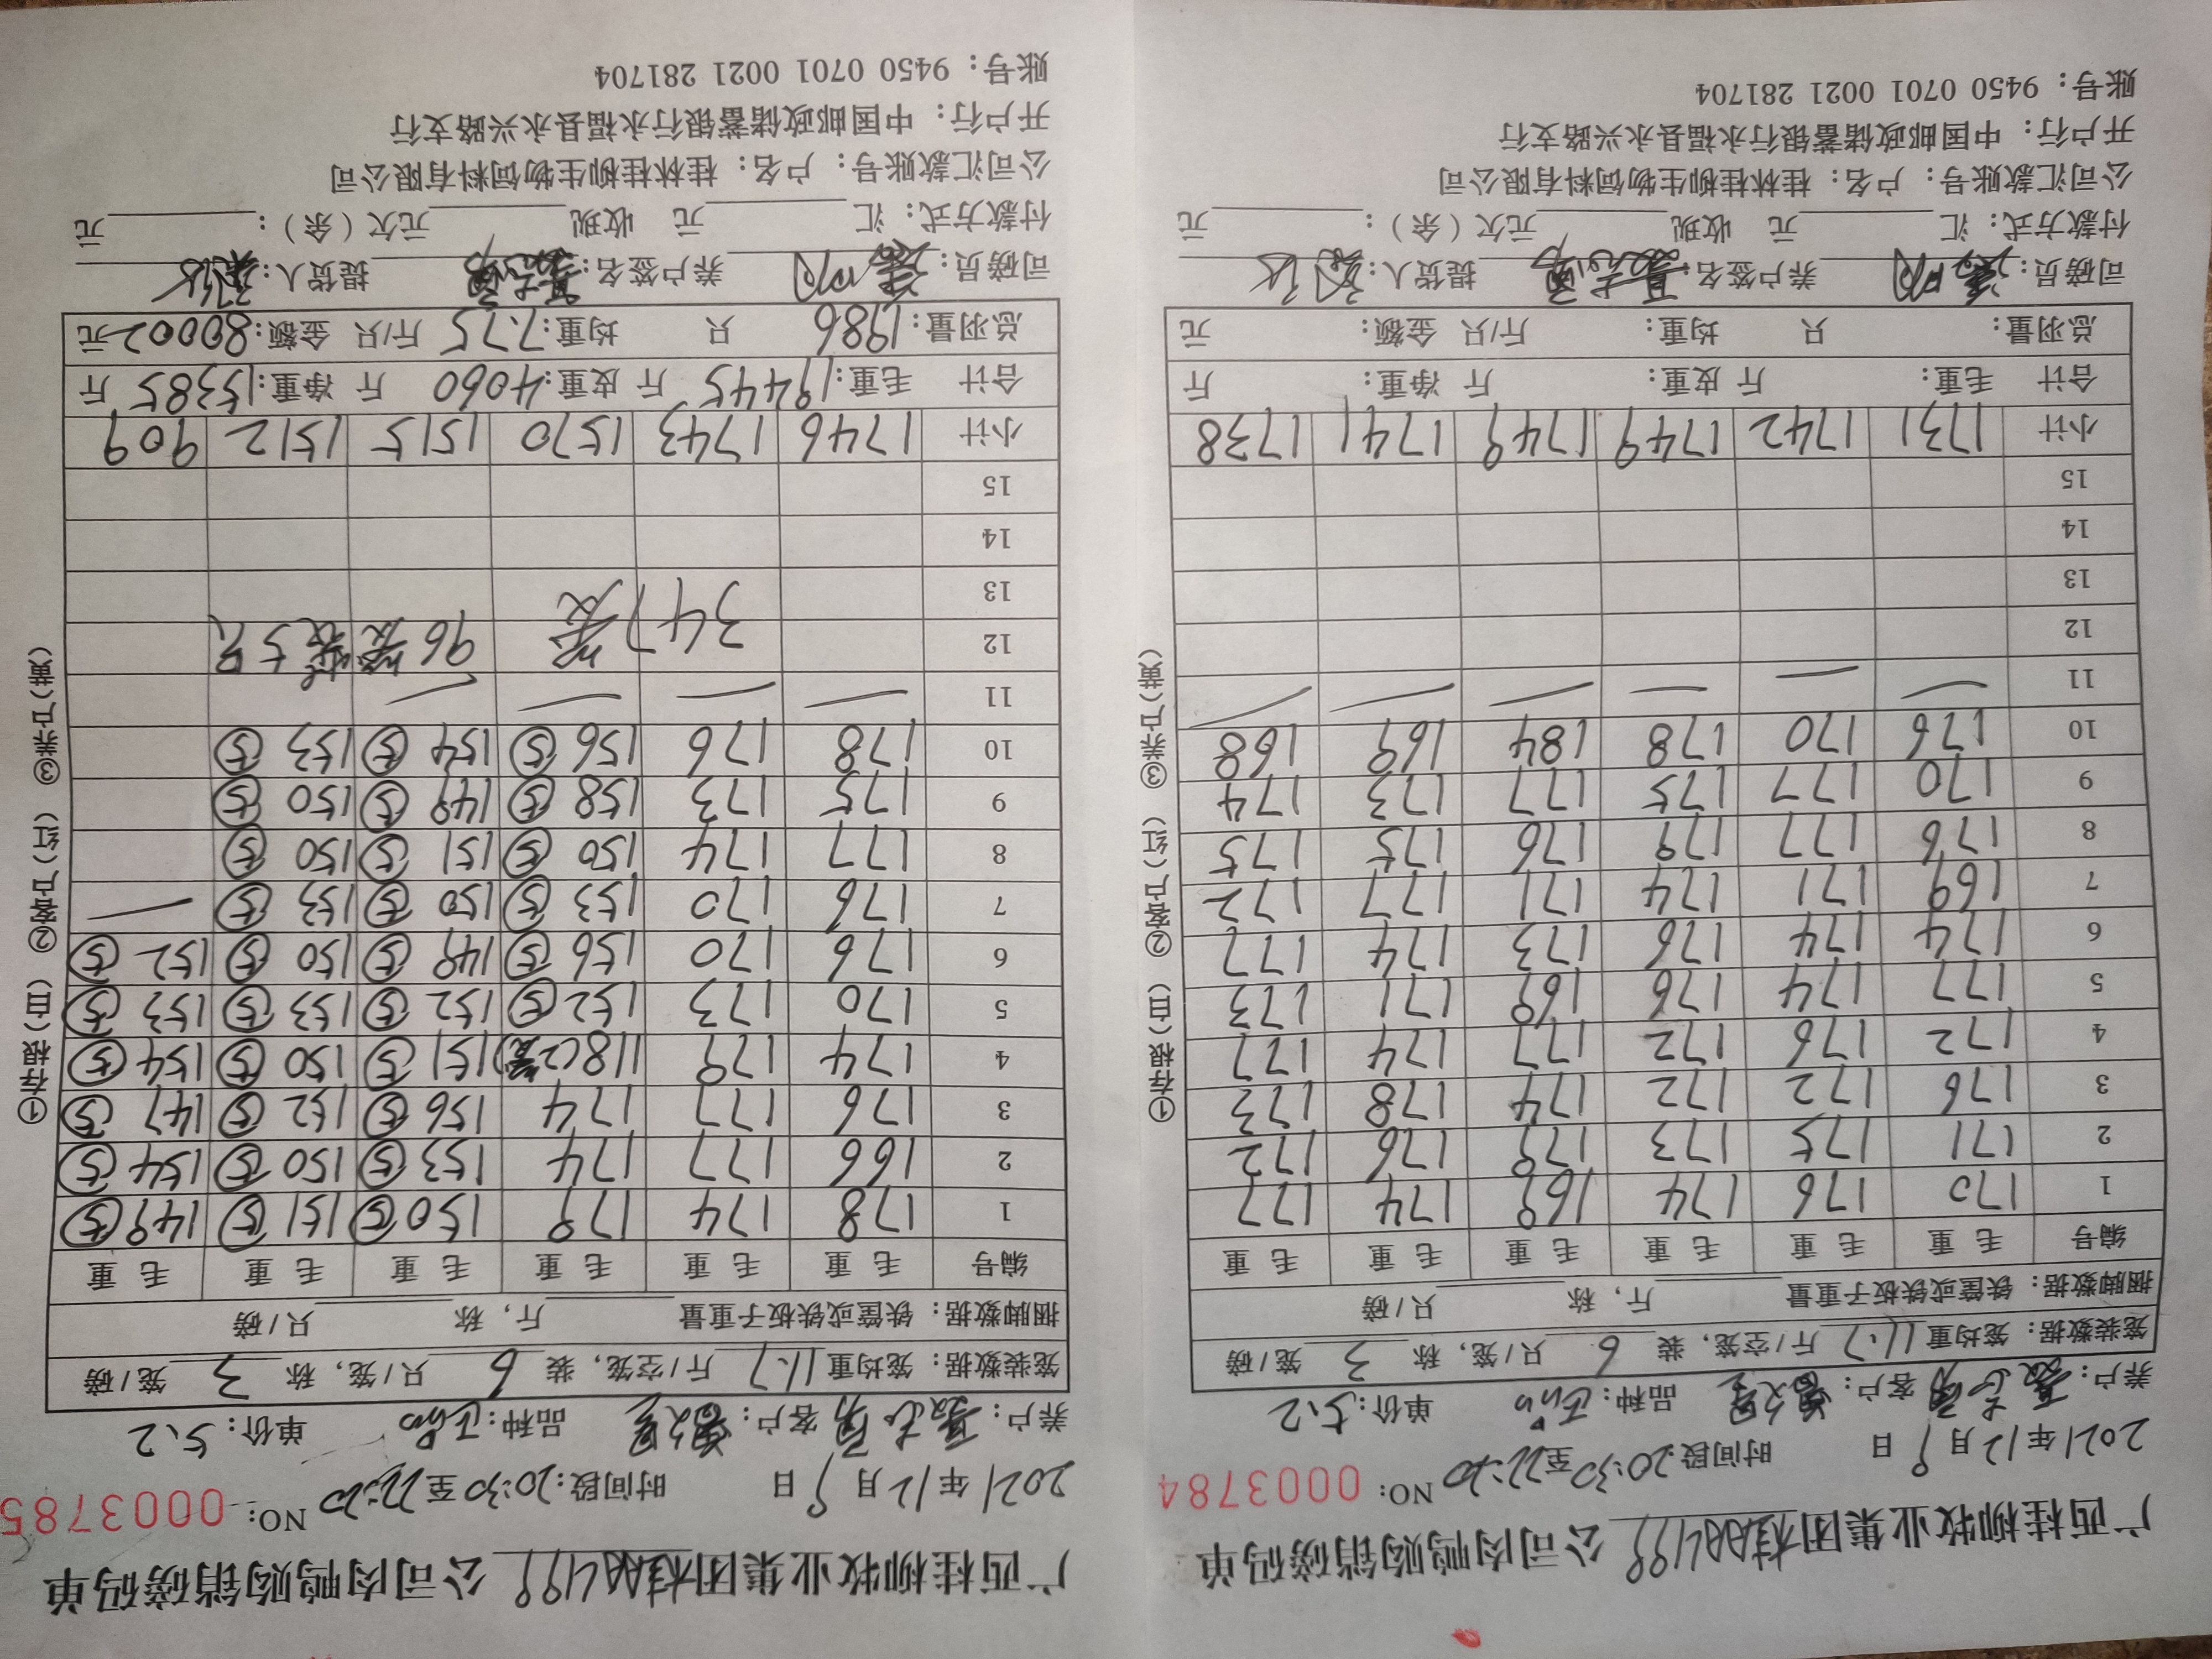 广西桂柳牧业集团桂柳499公司肉鸭购销磅码单
2021年12月9日 时间段:20:30至22:20 NO: 0003784
养户: 客户: 品种: 单价:5.2
笼装数据: 笼均重11.7斤/空笼, 装6只/笼, 称3笼/磅
捆脚数据: 铁筐或铁板子重量 斤, 称 只/磅
编号 毛重 毛重 毛重 毛重 毛重 毛重
1 170 176 174 169 174 177
2 171 175 173 179 176 172
3 176 172 172 174 178 173
4 172 176 172 177 174 177
5 177 174 176 169 171 173
6 174 174 176 173 174 177
7 169 171 174 171 177 172
8 176 177 179 176 175 175
9 170 177 175 177 173 174
10 176 170 178 184 169 168
11 — — — — — —
12
13
14
15
小计 1731 1742 1749 1749 1741 1738
合计 毛重: 斤 皮重: 斤 净重: 斤
总羽量: 只 均重: 斤/只 金额: 元
司磅员: 养户签名: 提货人:
付款方式: 汇 元 收现 元欠(余): 元
公司汇款账号: 户名: 桂林桂柳生物饲料有限公司
开户行: 中国邮政储蓄银行永福县永兴路支行
账号: 9450 0701 0021 281704
①存根(白) ②客户(红) ③养户(黄)
广西桂柳牧业集团桂柳499公司肉鸭购销磅码单
2021年12月9日 时间段:20:30至22:20 NO: 0003785
养户: 客户: 品种: 单价:5.2
笼装数据: 笼均重11.7斤/空笼, 装6只/笼, 称3笼/磅
捆脚数据: 铁筐或铁板子重量 斤, 称 只/磅
编号 毛重 毛重 毛重 毛重 毛重 毛重
1 178 174 179 150⑤ 151⑤ 149⑤
2 166 177 174 153⑤ 150⑤ 154⑤
3 176 177 174 156⑤ 152⑤ 147⑤
4 174 179 118(2笼) 151⑤ 150⑤ 154⑤
5 170 173 152⑤ 152⑤ 153⑤ 153⑤
6 176 170 156⑤ 149⑤ 150⑤ 152⑤
7 176 170 153⑤ 150⑤ 153⑤ —
8 177 174 150⑤ 151⑤ 150⑤
9 175 173 158⑤ 149⑤ 150⑤
10 178 176 156⑤ 154⑤ 153⑤
11 — — — —
12 347笼 96笼装5只
13
14
15
小计 1746 1743 1570 1515 1512 909
合计 毛重:19445斤 皮重:4060斤 净重:15385斤
总羽量:1986只 均重:7.75斤/只 金额:80002元
司磅员: 养户签名: 提货人:
付款方式: 汇 元 收现 元欠(余): 元
公司汇款账号: 户名: 桂林桂柳生物饲料有限公司
开户行: 中国邮政储蓄银行永福县永兴路支行
账号: 9450 0701 0021 281704
①存根(白) ②客户(红) ③养户(黄)